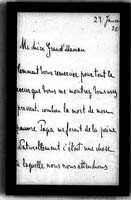 29 Janvier
20
Ma chère Grand'Maman
Comment vous remercier pour tout le
que vous me montrez vous
la mort de mon
pauvre Papa de la peine
Naturellement c'était une chose
à laquelle nous nous attendions